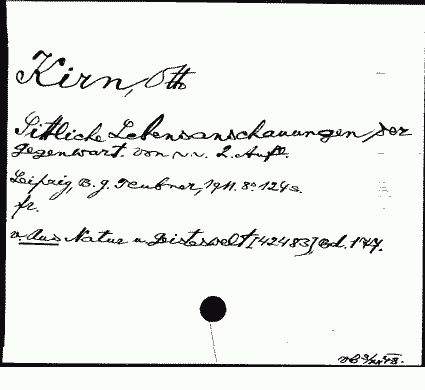 Kirn, Otto
Sittliche Lebensanschauungen der
Gegenwart. Von v. v. 2. Aufl.
Leipzig, B. G. Teubner, 1911. 8° 124 s.
fr.
v. Aus Natur u Geisteswelt [42483] Bd. 177.